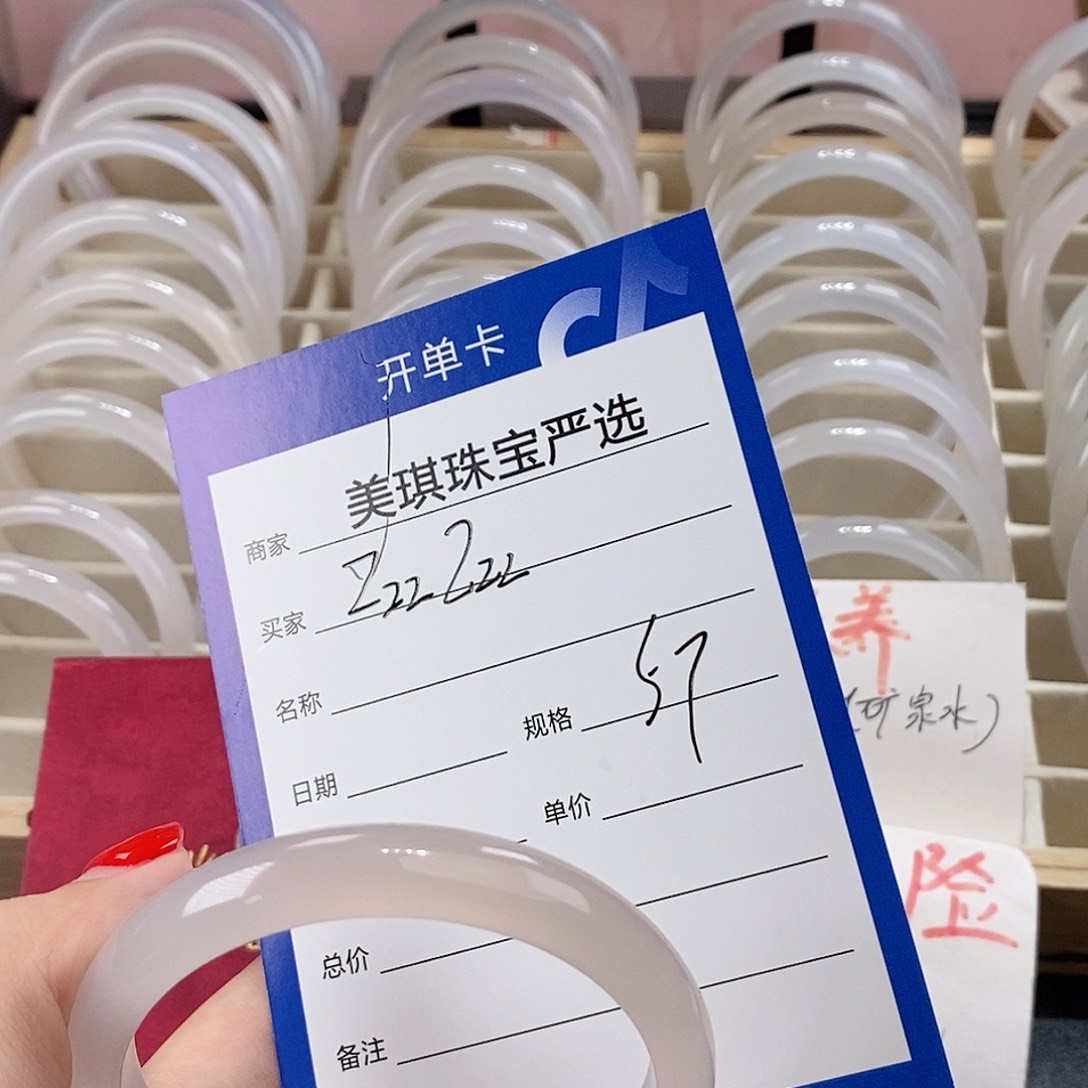 开单卡
商家 美琪珠宝严选
买家 Z22Z22
名称
规格 57
日期
单价
总价
备注
养
(矿泉水)
险